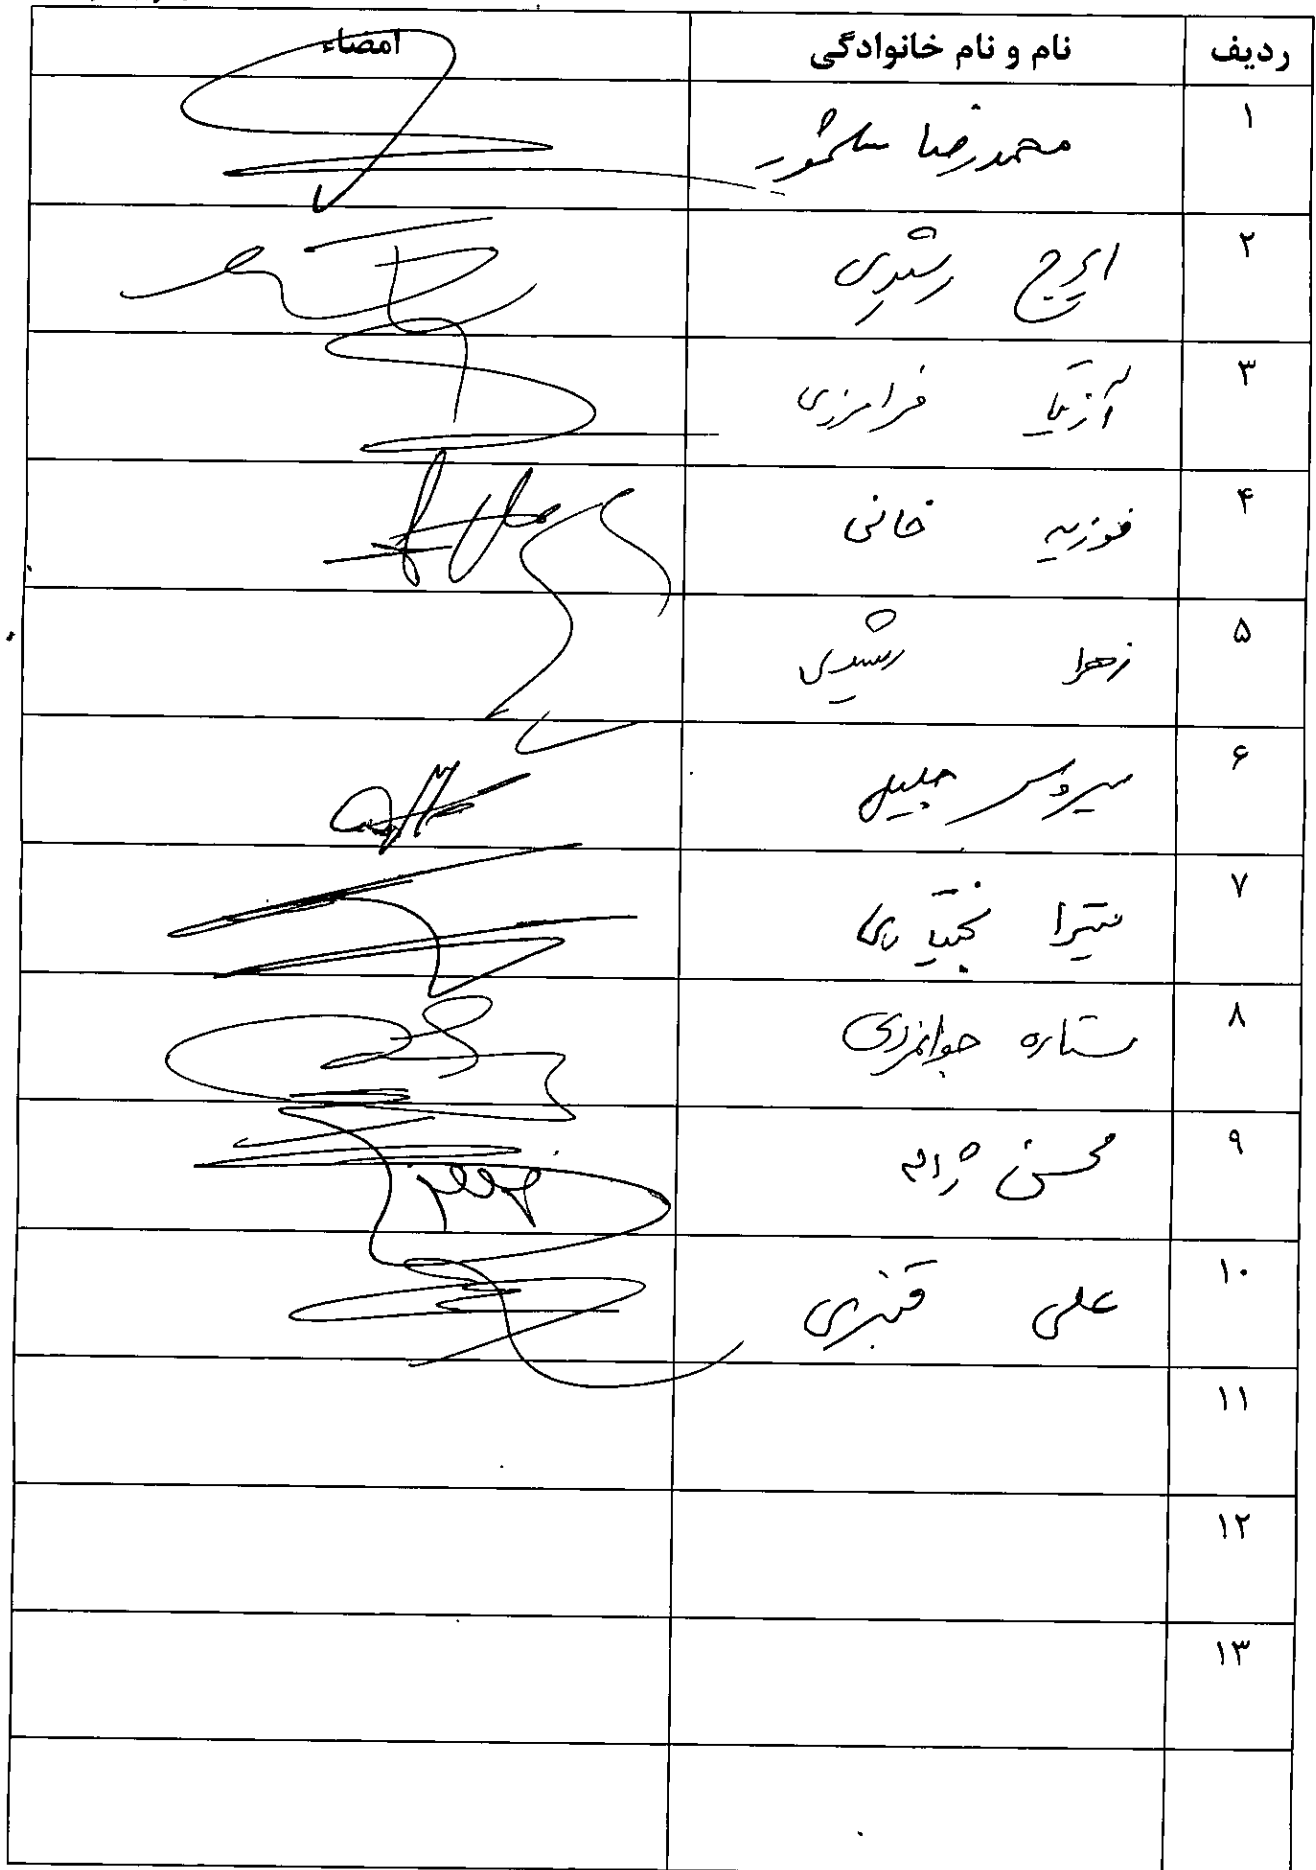 ردیف نام و نام خانوادگی امضاء
۱ محمدرضا
۲ ایرج رشیدی
۳ آزیتا فرامرزی
۴ فوزیه خانی
۵ زهرا رشیدی
۶ سیروس جلیلی
۷ میترا بختیاری
۸ ستاره جوانمردی
۹ محسن
۱۰ علی قنبری
۱۱
۱۲
۱۳